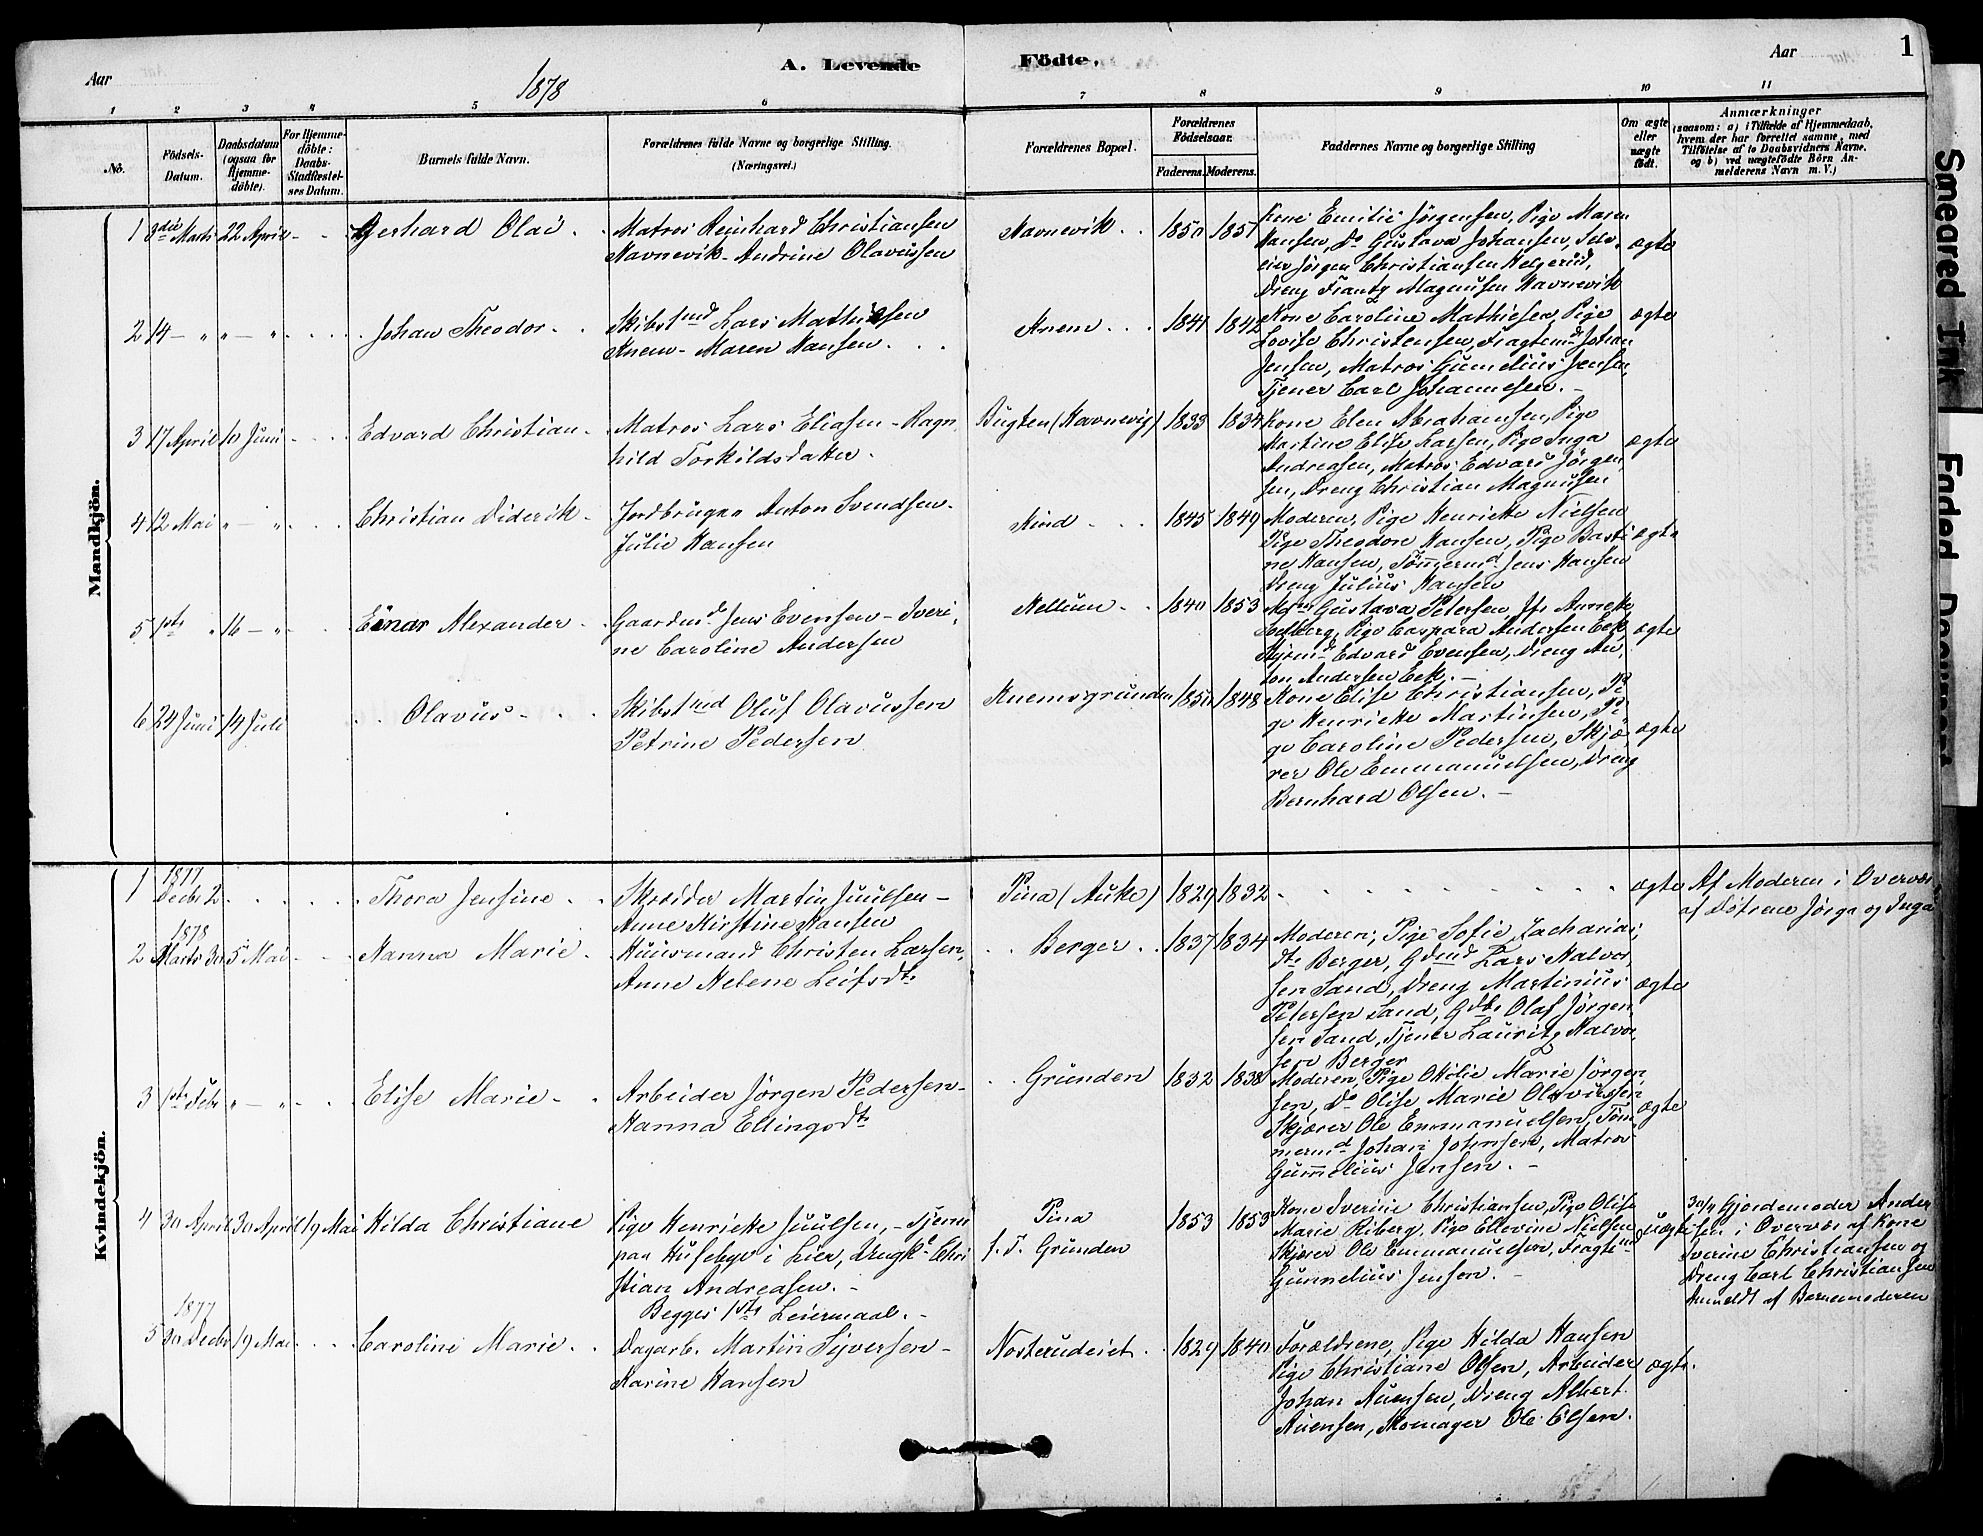 Aar
1878
A. Levende Födte.
Aar
1
1 2 3 4 5 6 7 8 9 10 11
No.
Födsels-Datum.
Daabsdatum (ogsaa for Hjemme-döbte).
For Hjemme-döbte: Daabs-Stadfæstel-ses Datum.
Barnets fulde Navn.
Forældrenes fulde Navne og borgerlige Stilling.
(Næringsvei.)
Forældrenes Bopæl.
Forældrenes Födselsaar.
Faderens. Moderens.
Faddernes Navne og borgerlige Stilling
Om ægte eller uægte födt.
Anmærkninger
(saasom: a) i Tilfælde af Hjemmedaab,
hvem der har forrettet samme, med
Tilföielse af to Daabsvidners Navne,
og b) ved uægtefödte Börn An-
melderens Navn m. V.)
Mandkjön.
1 3die Marts 22 April - - Gerhard Olai
Matros Reinhard Christiansen
Navnevik - Andrine Olavussen
Navnevik 1850 1851
Kone Emilie Jörgensen, Pige Maren
Hansen, Do Gustava Johansen, Selv-
eier Jörgen Christiansen Helgerud,
Dreng Frantz Magnusen Havnevik
ægte
2 14 - " " - " Johan Theodor
Skibstmd Lars Mathiesen
Knem - Maren Hansen
Knem 1841 1842
Kone Caroline Mathiesen, Pige
Lovise Christensen, Fragtemd Johan
Jensen, Matros Gunnelius Jensen,
Tjener Carl Johannesen. -
ægte
3 17 April 10 Juni - Edvard Christian
Matros Lars Eliasen - Ragn
hild Torkildsdatter.
Bugten (Havnevig) 1833 1834
Kone Elen Abrahamsen, Pige
Martine Elise Larsen, Pige Inga
Andreasen, Matros Edvard Jörgen
sen, Dreng Christian Magnusen
ægte
4 12 Mai " - " Christian Diderik
Jordbruger Anton Svendsen
Julie Hansen
Kind 1845 1849
Moderen, Pige Henriette Nielsen
Pige Theodore Hansen, Pige Basti
ne Hansen, Tömmermd Jens Hansen
Dreng Julius Hansen
ægte
5 1ste " 16 - " Einar Alexander
Gaardmd Jens Evensen - Iveri,
ne Caroline Andersen
Kellum 1840 1853
Gustava Petersen, Jfr Annette
Pige Caspara Andersen Eek
Styrmd Edvard Evensen, Dreng An,
ton Andersen Eek. -
ægte
6 24 Juni 14 Juli Olavus
Skibstmd Oluf Olavussen
Petrine Pedersen
Knemsgrunden 1850 1848
Kone Elise Christiansen, Pi
ge Henriette Martinsen, Pi
ge Caroline Pedersen, Skjæ
rer Ole Emmanuelsen, Dreng
Bernhard Olsen. -
ægte
Kvindekjön.
1 1877 Decbr 2 Thora Jensine
Skræder Martin Juulsen -
Anne Kirstine Hansen
Pina (Auke) 1829 1832
ægte
Af Moderen i Overvær
af Døtrene Jörga og Inga
2 1878 Marts 30 5 Mai Hanna Marie
Huusmand Christen Larsen,
Anne Helene Leifsdtr
Berger 1837 1834
Moderen, Pige Sofie Zacharias
dtr Berger, Gdmd Lars Halvor,
sen Sand, Dreng Martinius
Petersen Sand, Gdbr Olaf Jörgen
sen Sand, Tjener Lauritz Halvor,
sen Berger
ægte
3 1ste Febr " - " Elise Marie
Arbeider Jörgen Pedersen -
Hanna Ellingsdtr
Grunden 1832 1838
Moderen, Pige Otilie Marie Jörgen,
sen, Do Olise Marie Olavussen
Skjærer Ole Emmanuelsen, Töm
mermd Johan Johnsen, Matros
Gunnelius Jensen. -
ægte
4 30 April 30 April 19 Mai Hilda Christiane
Pige Henriette Juulsen, - Tjener
paa Husebye i Lier, Ungk. Chri
stian Andreasen. -
Begges 1ste Leiermaal. -
Pina
f. T. Grunden
1853 1853
Kone Iverine Christiansen, Pige Olise
Marie Riberg, Pige Ellevine Nielsen
Skjærer Ole Emmanuelsen, Fragtemd
Gunnelius Jensen. -
uægte
30/4 Gjordemoder Ander
sen i Overvær af Kone
Iverine Christiansen og
Dreng Carl Christiansen
Anmeldt af Barnemoderen
5 1877 30 Decbr 19 Mai Caroline Marie
Dagarb. Martin Syversen -
Karine Hansen
Nosterudeiet 1829 1840
Forældrene, Pige Hilda Hansen
Pige Christiane Olsen, Arbeider
Johan Auensen, Dreng Albert
Auensen, Skomager Ole Olsen.
ægte.
Smeared Ink
Faded Document